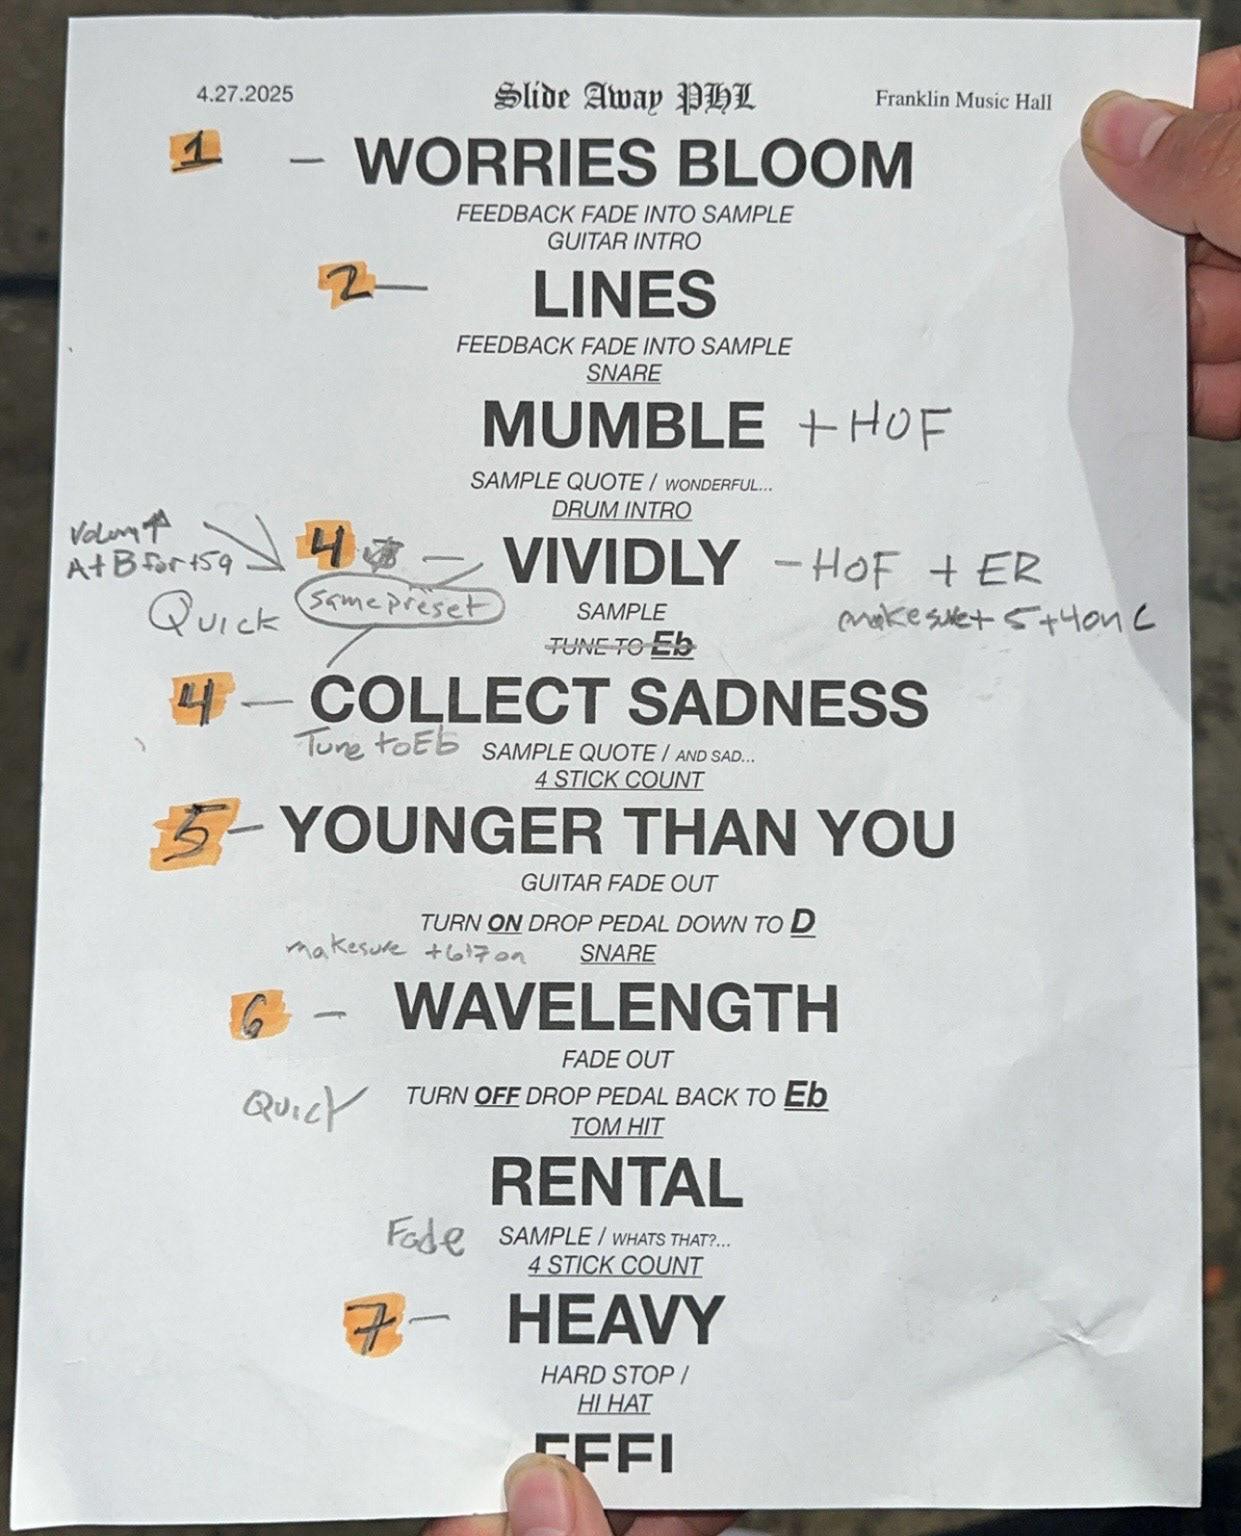 4.27.2025 Slide Away PHL Franklin Music Hall
1 — WORRIES BLOOM
FEEDBACK FADE INTO SAMPLE
GUITAR INTRO
2 — LINES
FEEDBACK FADE INTO SAMPLE
SNARE
MUMBLE + HOF
SAMPLE QUOTE / WONDERFUL...
DRUM INTRO
Volum↑
A+B for +5q
4 — VIVIDLY - HOF + ER
Quick
same preset
SAMPLE
make sure + 5 + 4 on C
TUNE TO Eb
4 — COLLECT SADNESS
Tune to Eb
SAMPLE QUOTE / AND SAD...
4 STICK COUNT
5 — YOUNGER THAN YOU
GUITAR FADE OUT
TURN ON DROP PEDAL DOWN TO D
make sure +6+7 on
SNARE
6 — WAVELENGTH
FADE OUT
Quick
TURN OFF DROP PEDAL BACK TO Eb
TOM HIT
RENTAL
Fade
SAMPLE / WHATS THAT?...
4 STICK COUNT
7 — HEAVY
HARD STOP /
HI HAT